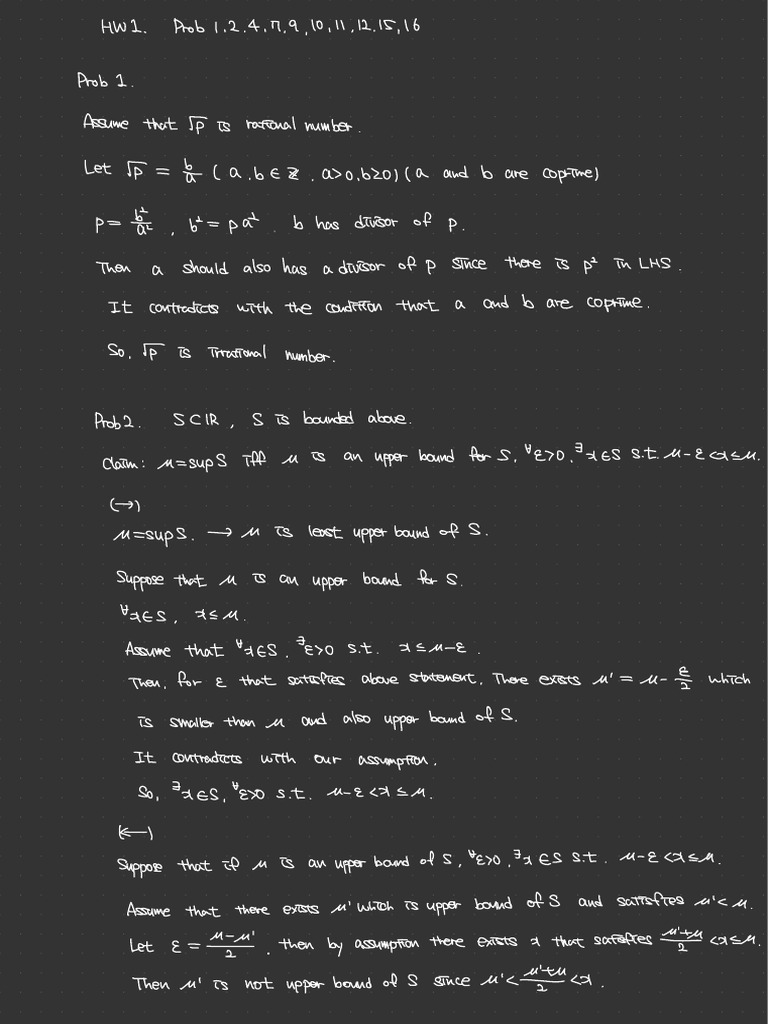 HW1. Prob 1, 2, 4, 7, 9, 10, 11, 12, 15, 16
Prob 1.
Assume that √p is rational number.
Let √p = b/a (a, b ∈ ℤ, a>0, b≥0) (a and b are coprime)
p = b²/a², b² = pa². b has divisor of p.
Then a should also has a divisor of p since there is p² in LHS.
It contradicts with the condition that a and b are coprime.
So, √p is irrational number.
Prob2. S⊂ℝ, S is bounded above.
Claim: μ=supS iff μ is an upper bound for S, ∀ε>0, ∃x∈S s.t. μ-ε<x≤μ.
(→)
μ=supS. → μ is least upper bound of S.
Suppose that μ is an upper bound for S.
∀x∈S, x≤μ.
Assume that ∀x∈S, ∃ε>0 s.t. x≤μ-ε.
Then, for ε that satisfies above statement, There exists μ' = μ - ε/2 which
is smaller than μ and also upper bound of S.
It contradicts with our assumption.
So, ∃x∈S, ∀ε>0 s.t. μ-ε<x≤μ.
(←)
Suppose that if μ is an upper bound of S, ∀ε>0, ∃x∈S s.t. μ-ε<x≤μ.
Assume that there exists μ' which is upper bound of S and satisfies μ'<μ.
Let ε = (μ-μ')/2, then by assumption there exists x that satisfies (μ'+μ)/2 <x≤μ.
Then μ' is not upper bound of S since μ' < (μ'+μ)/2 < x.